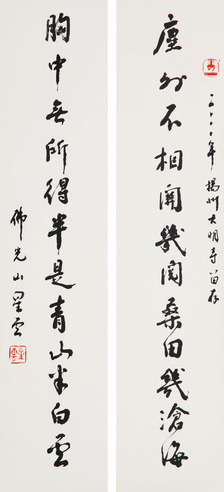 塵外不相關幾閱桑田幾滄海
年揚州大明寺留存
胸中無所得半是青山半白雲
佛光山星雲
星雲